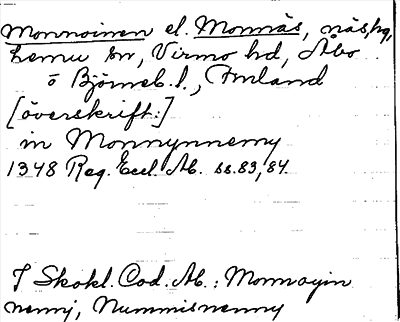 Monnoinen el. Monnäs, näs, hg,
Lemu sn, Virmo hd, Åbo
o Björneb. l., Finland
[överskrift:]
in Monnynnemy
1348 Reg. Eccl. Ab. ss. 83, 84.
I Skokl. Cod. Ab.: Monnoyin
nemj, Nummisnemy